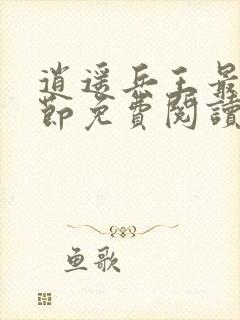 逍遥兵王最
節免費閱讀
鱼歌